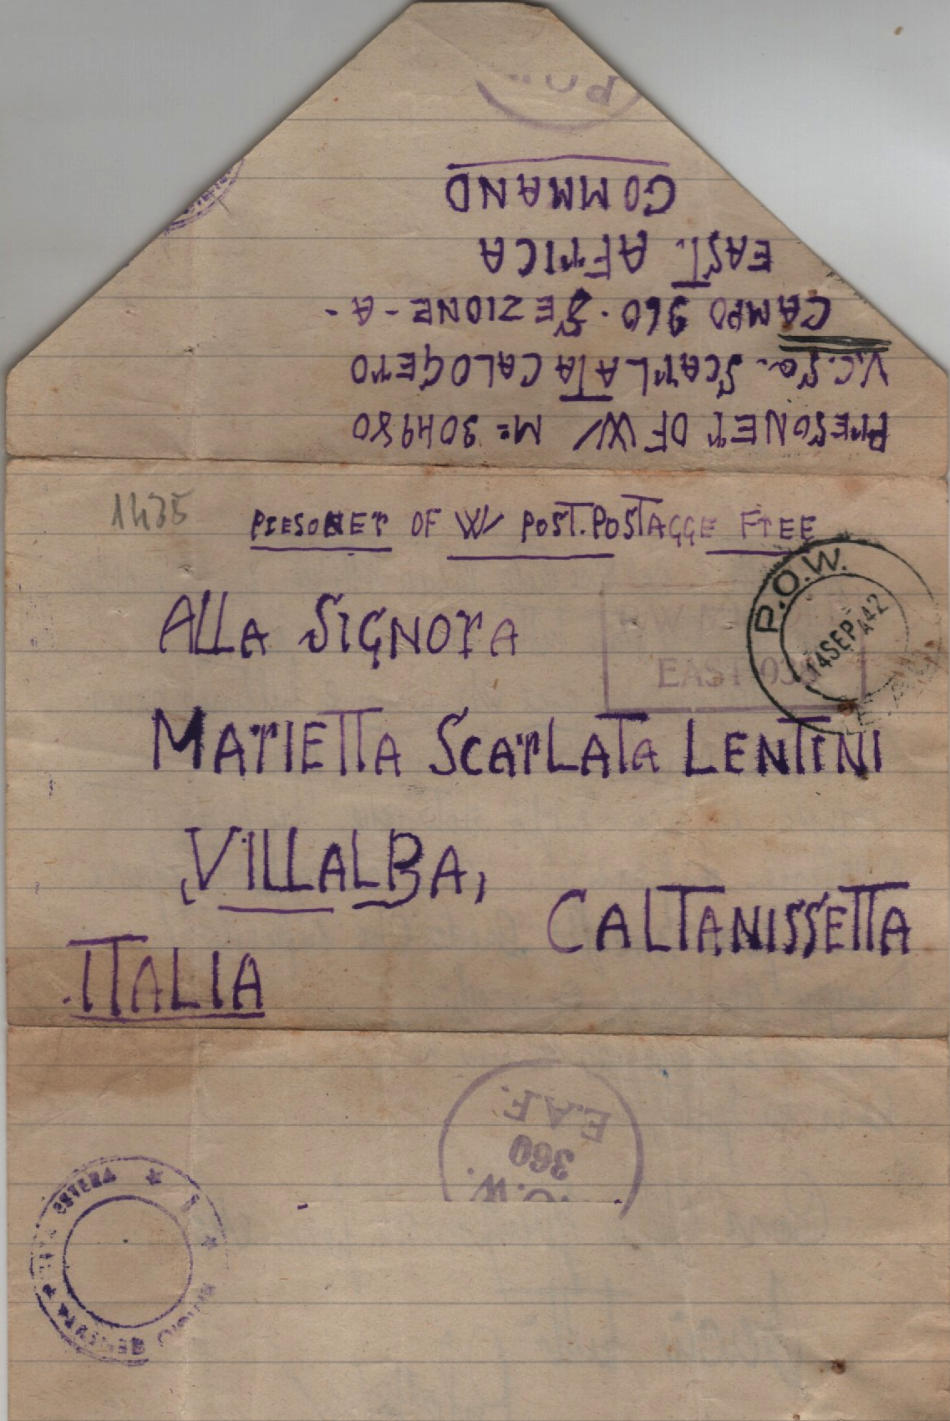 PRESONER OF W/ Mº= 304980
V.C.Sq. SCARLATA CALOGERO
CAMPO 360. SEZIONE -A-
EAST. AFRICA
COMMAND
P.O.
1435
PRESONER OF W/ POST. POSTAGGE FREE
P.O.W.
14 SEP 42
EAST 03
ALLA SIGNORA
MARIETTA SCARLATA LENTINI
VILLALBA,
CALTANISSETTA
ITALIA
E.A.F.
360
.O.W.
POSTA ESTERA